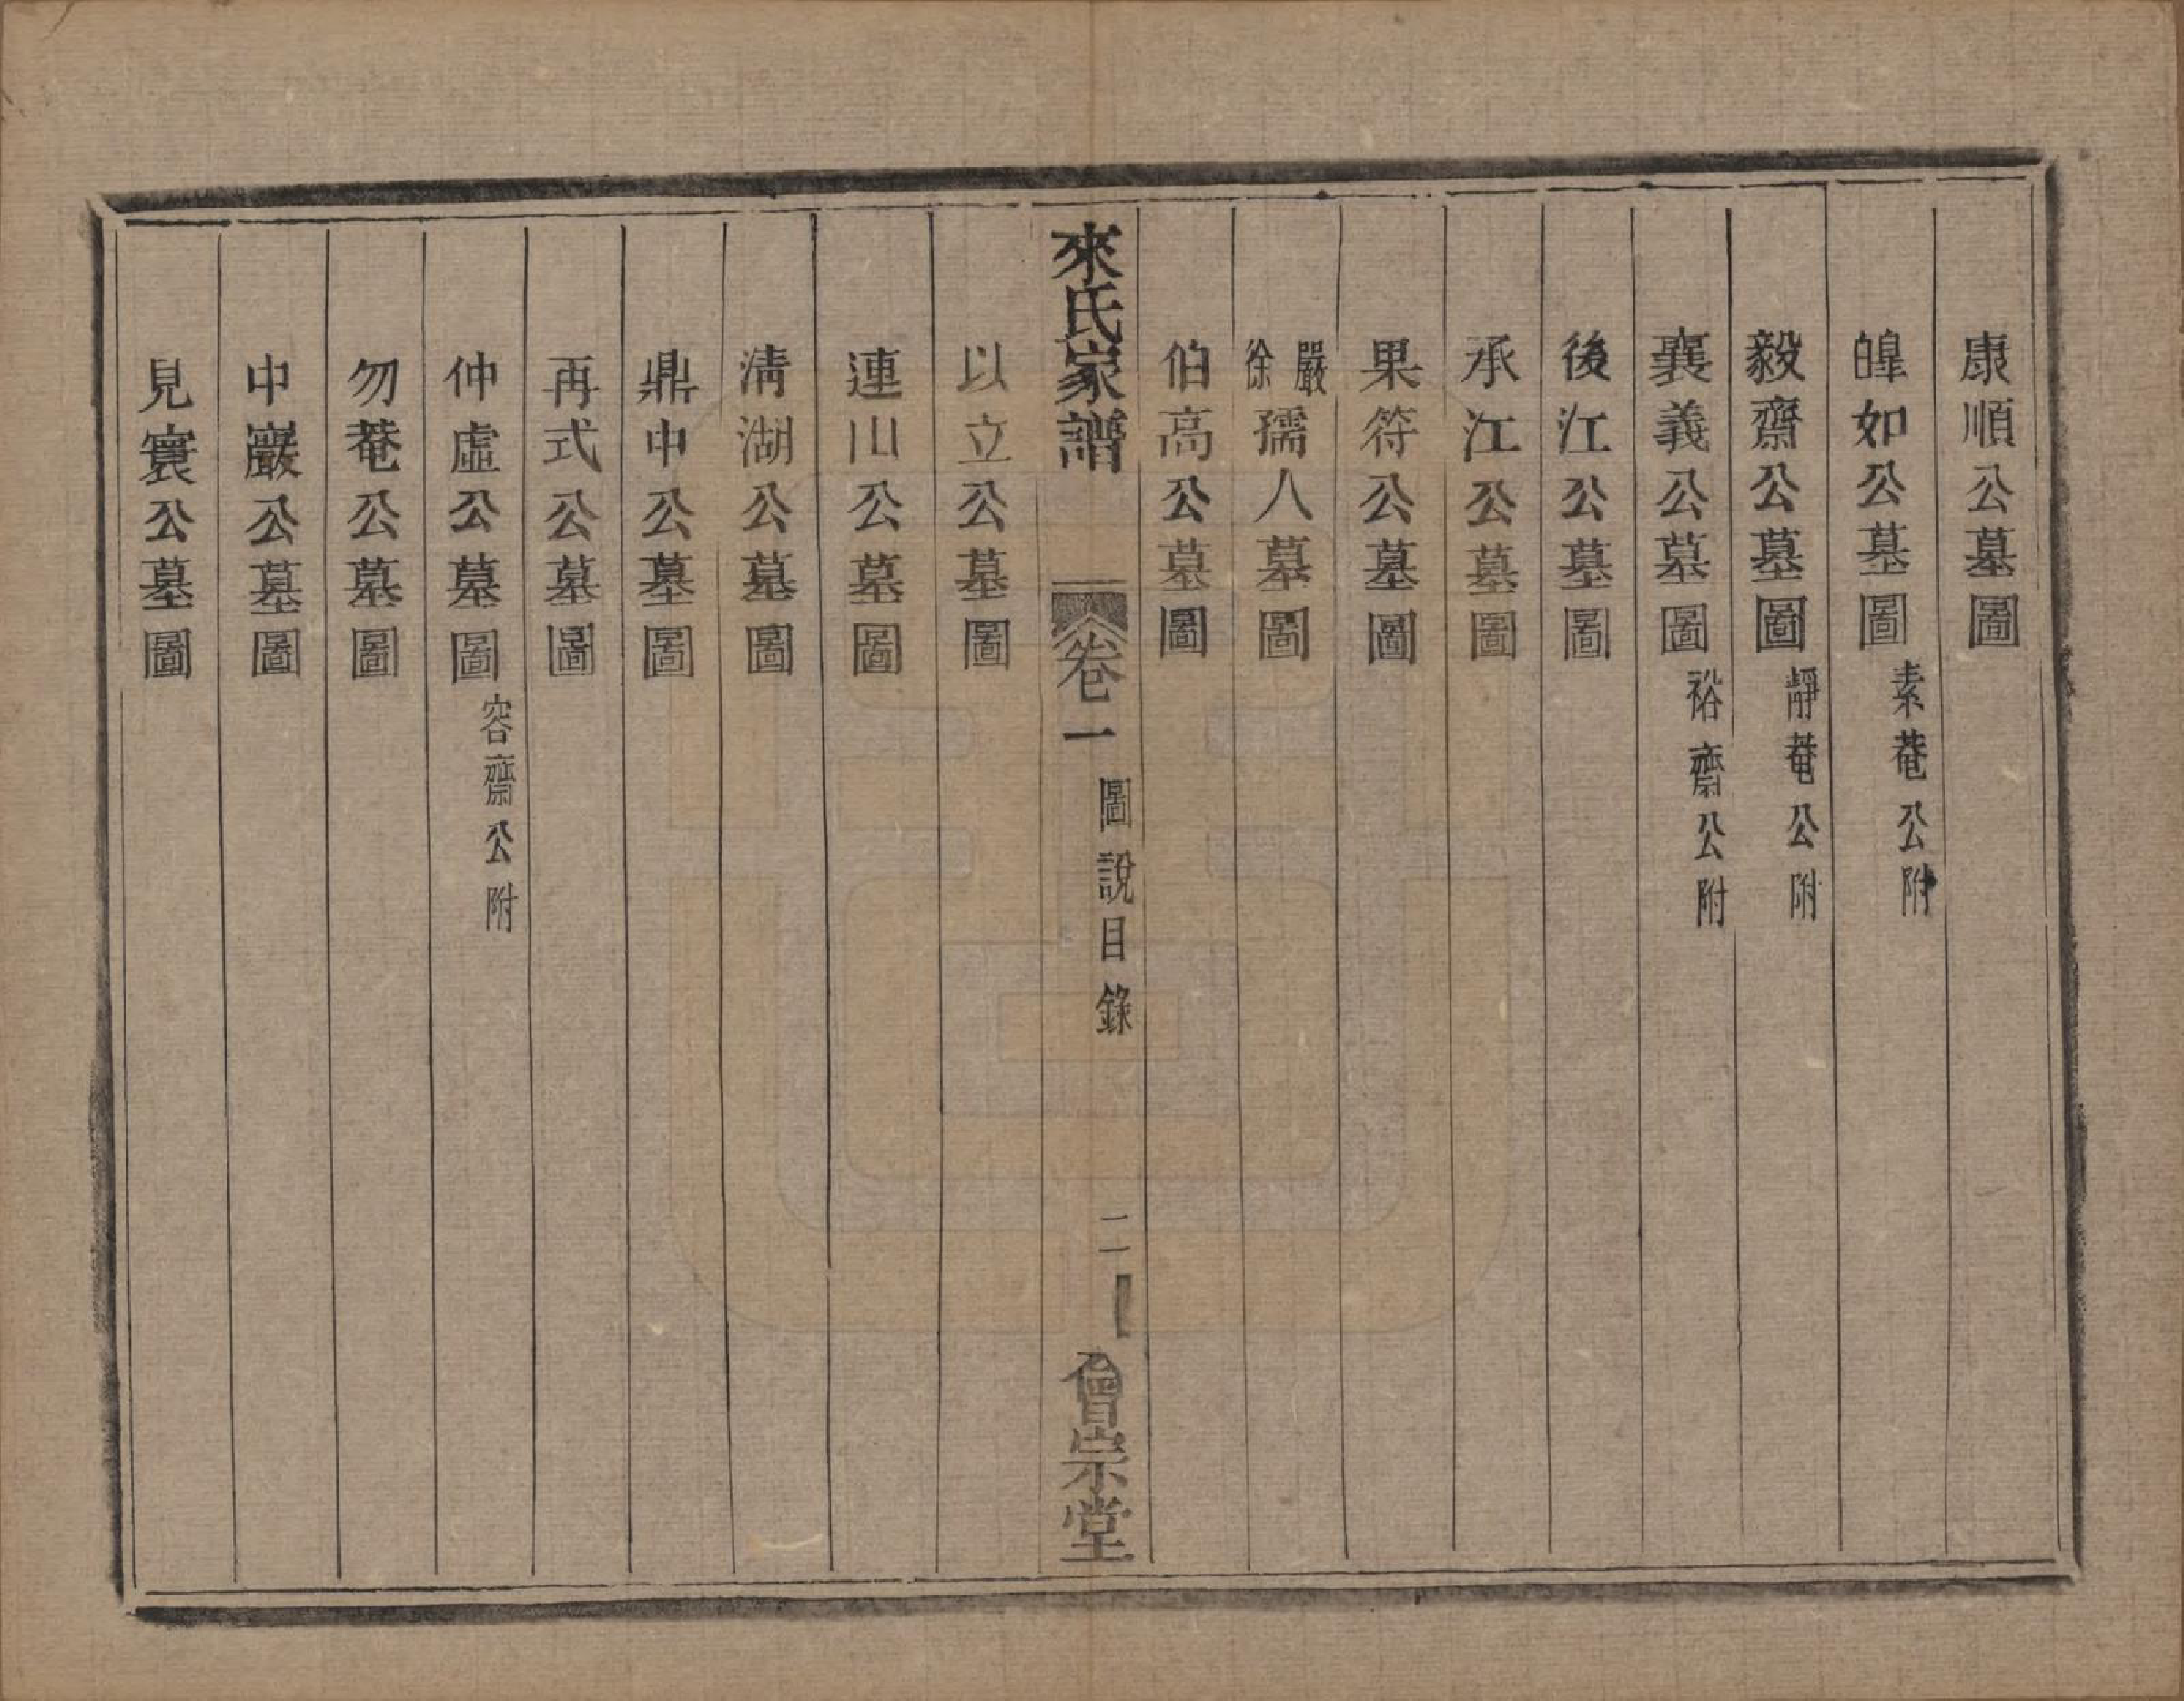 康順公墓圖
皥如公墓圖 素菴公附
毅齋公墓圖 靜菴公附
襄義公墓圖 裕齋公附
後江公墓圖
承江公墓圖
果符公墓圖
嚴徐孺人墓圖
伯高公墓圖
來氏家譜 卷一 圖說目錄 二 會宗堂
以立公墓圖
連山公墓圖
清湖公墓圖
鼎中公墓圖
再式公墓圖
仲虛公墓圖 容齋公附
勿菴公墓圖
中巖公墓圖
見寰公墓圖